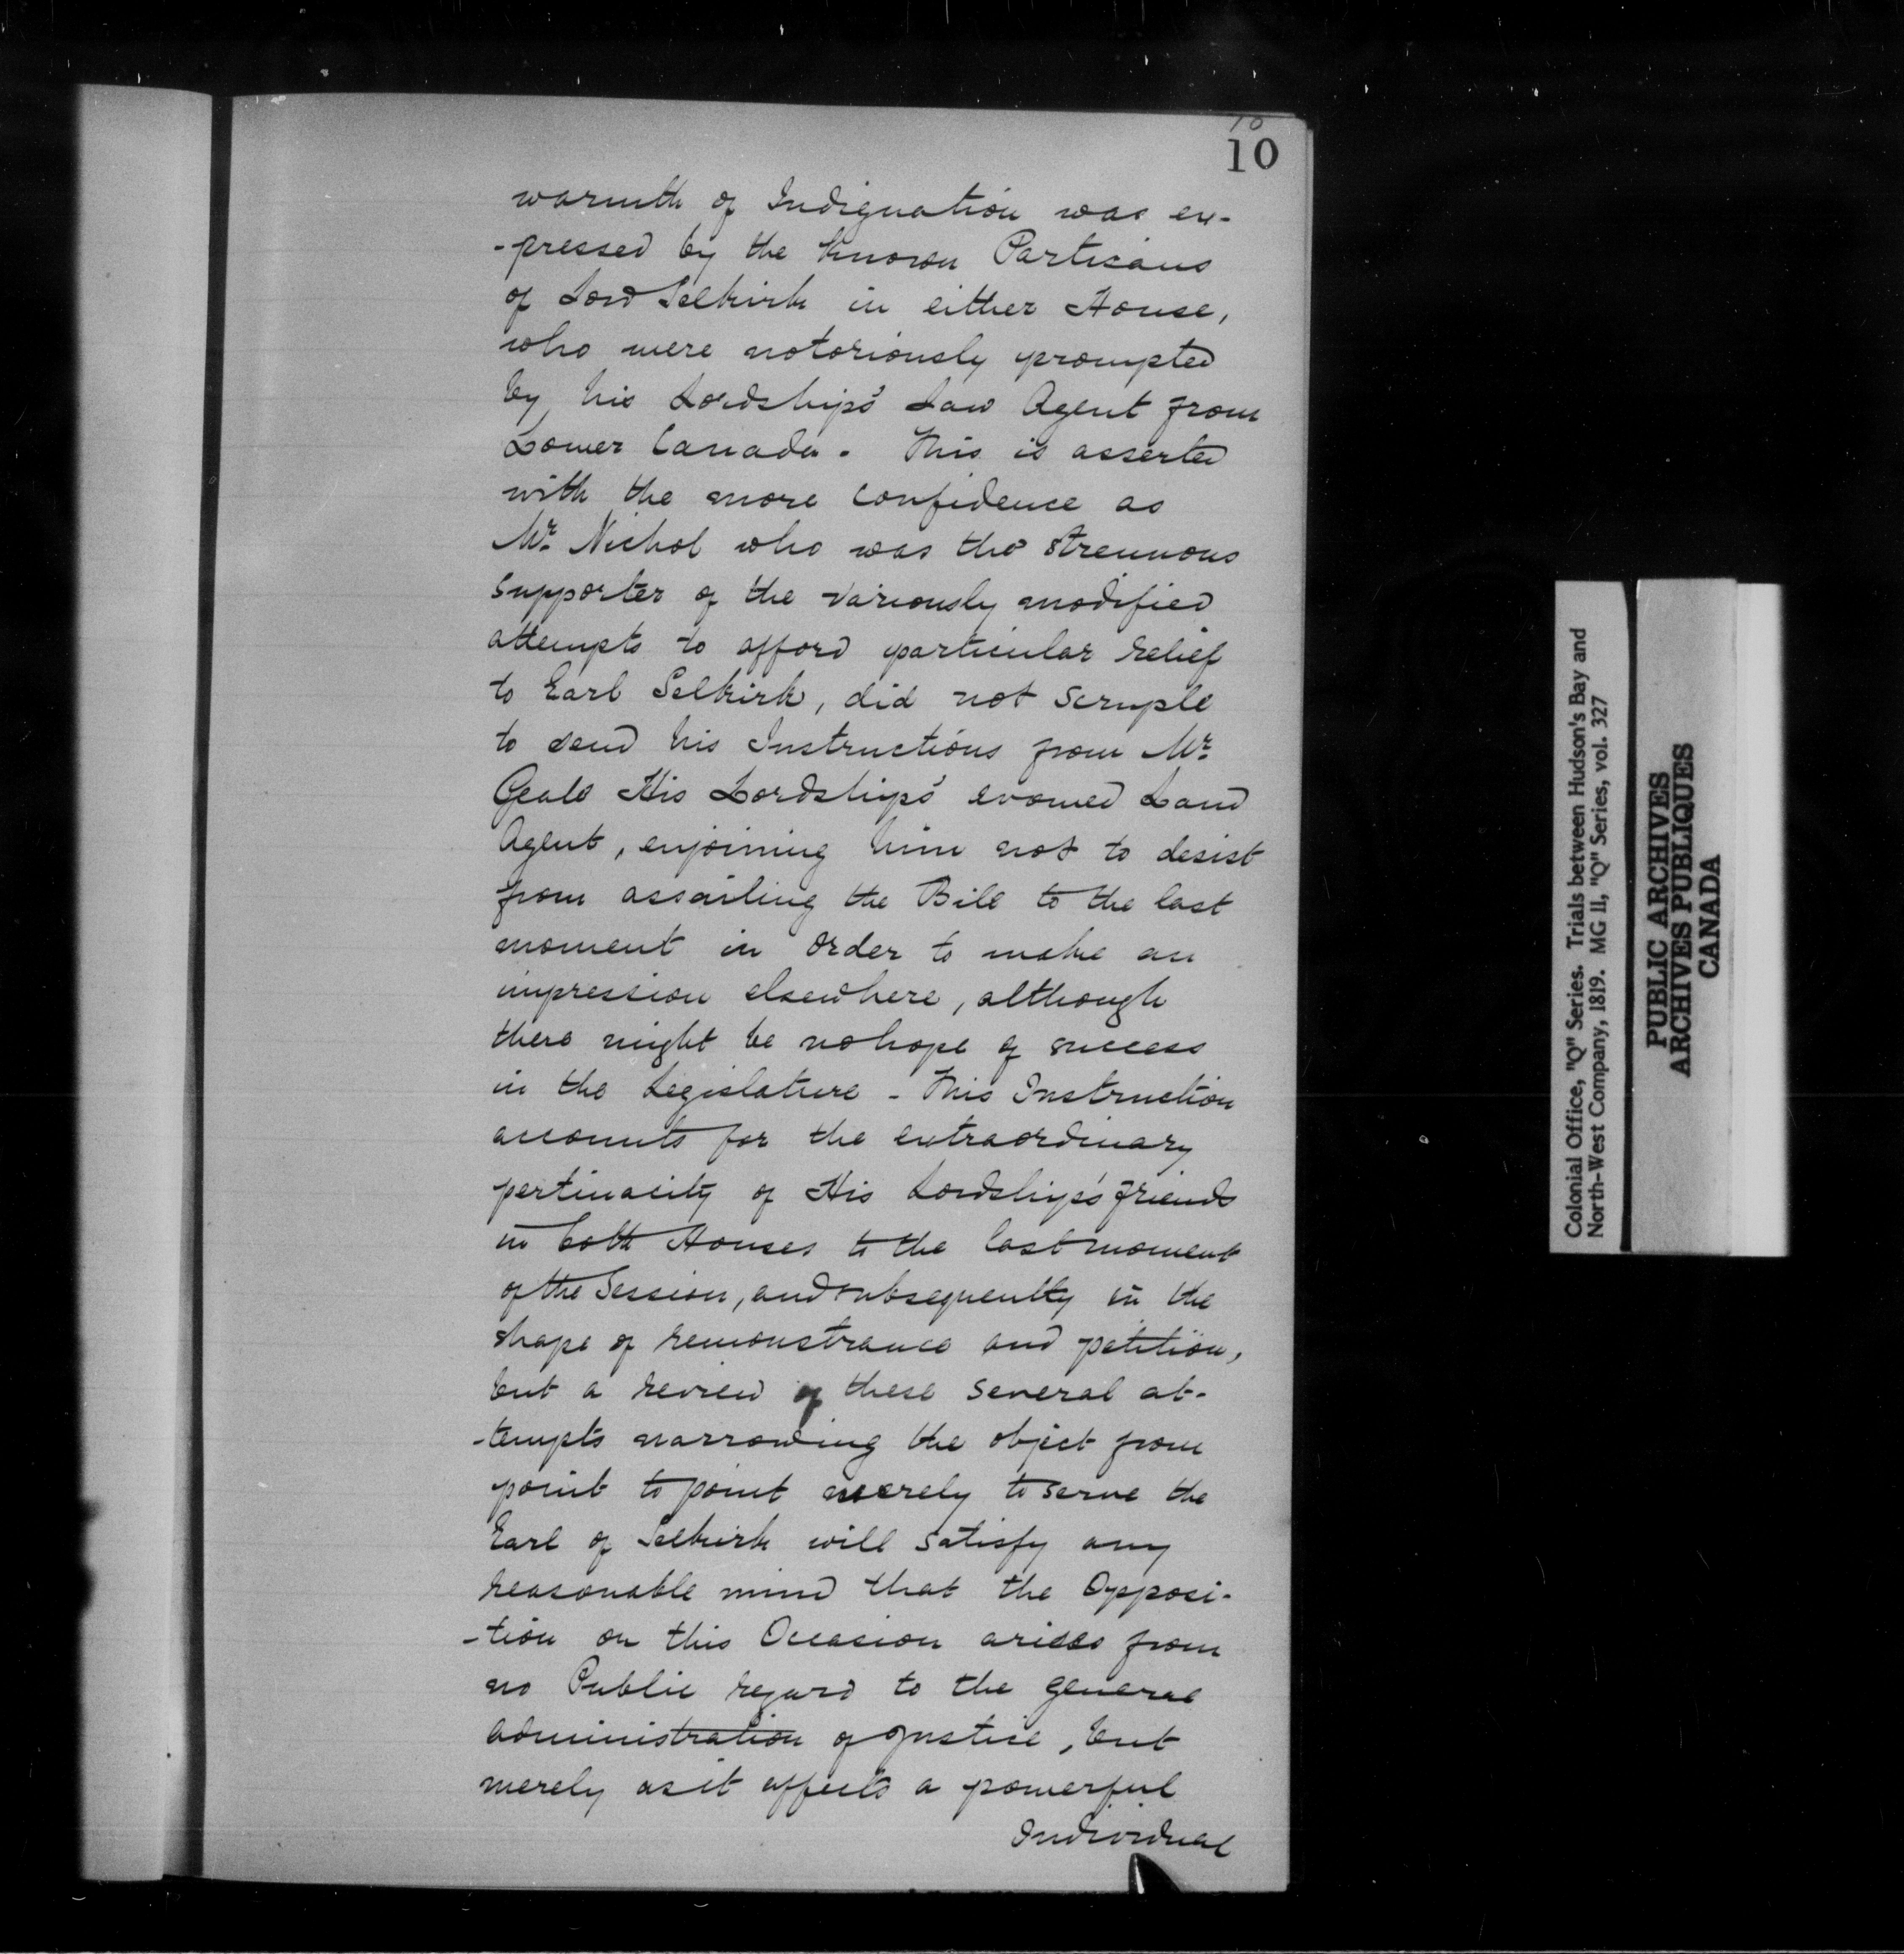 10
10
warmth of Indignation was ex-
-pressed by the known Partisans
of Lord Selkirk in either House,
who were notoriously prompted
by his Lordships' Law Agent from
Lower Canada. This is asserted
with the more confidence as
Mr. Nichol who was the strenuous
supporter of the variously modified
attempts to afford particular relief
to Earl Selkirk, did not scruple
to send his Instructions from Mr.
Geale His Lordships' avowed Land
Agent, enjoining him not to desist
from assailing the Bill to the last
moment in order to make an
impression elsewhere, although
there might be no hope of success
in the Legislature - This Instruction
accounts for the extraordinary
pertinacity of His Lordship's friends
in both Houses to the last moment
of the Session, and subsequently in the
shape of remonstrance and petition,
but a review of these several at-
-tempts narrowing the object from
point to point merely to serve the
Earl of Selkirk will satisfy any
reasonable mind that the Opposi-
-tion on this Occasion arises from
no Public regard to the general
administration of Justice, but
merely as it affects a powerful
Individual
Colonial Office, "Q" Series. Trials between Hudson's Bay and
North-West Company, 1819. MG 11, "Q" Series, vol. 327
PUBLIC ARCHIVES
ARCHIVES PUBLIQUES
CANADA